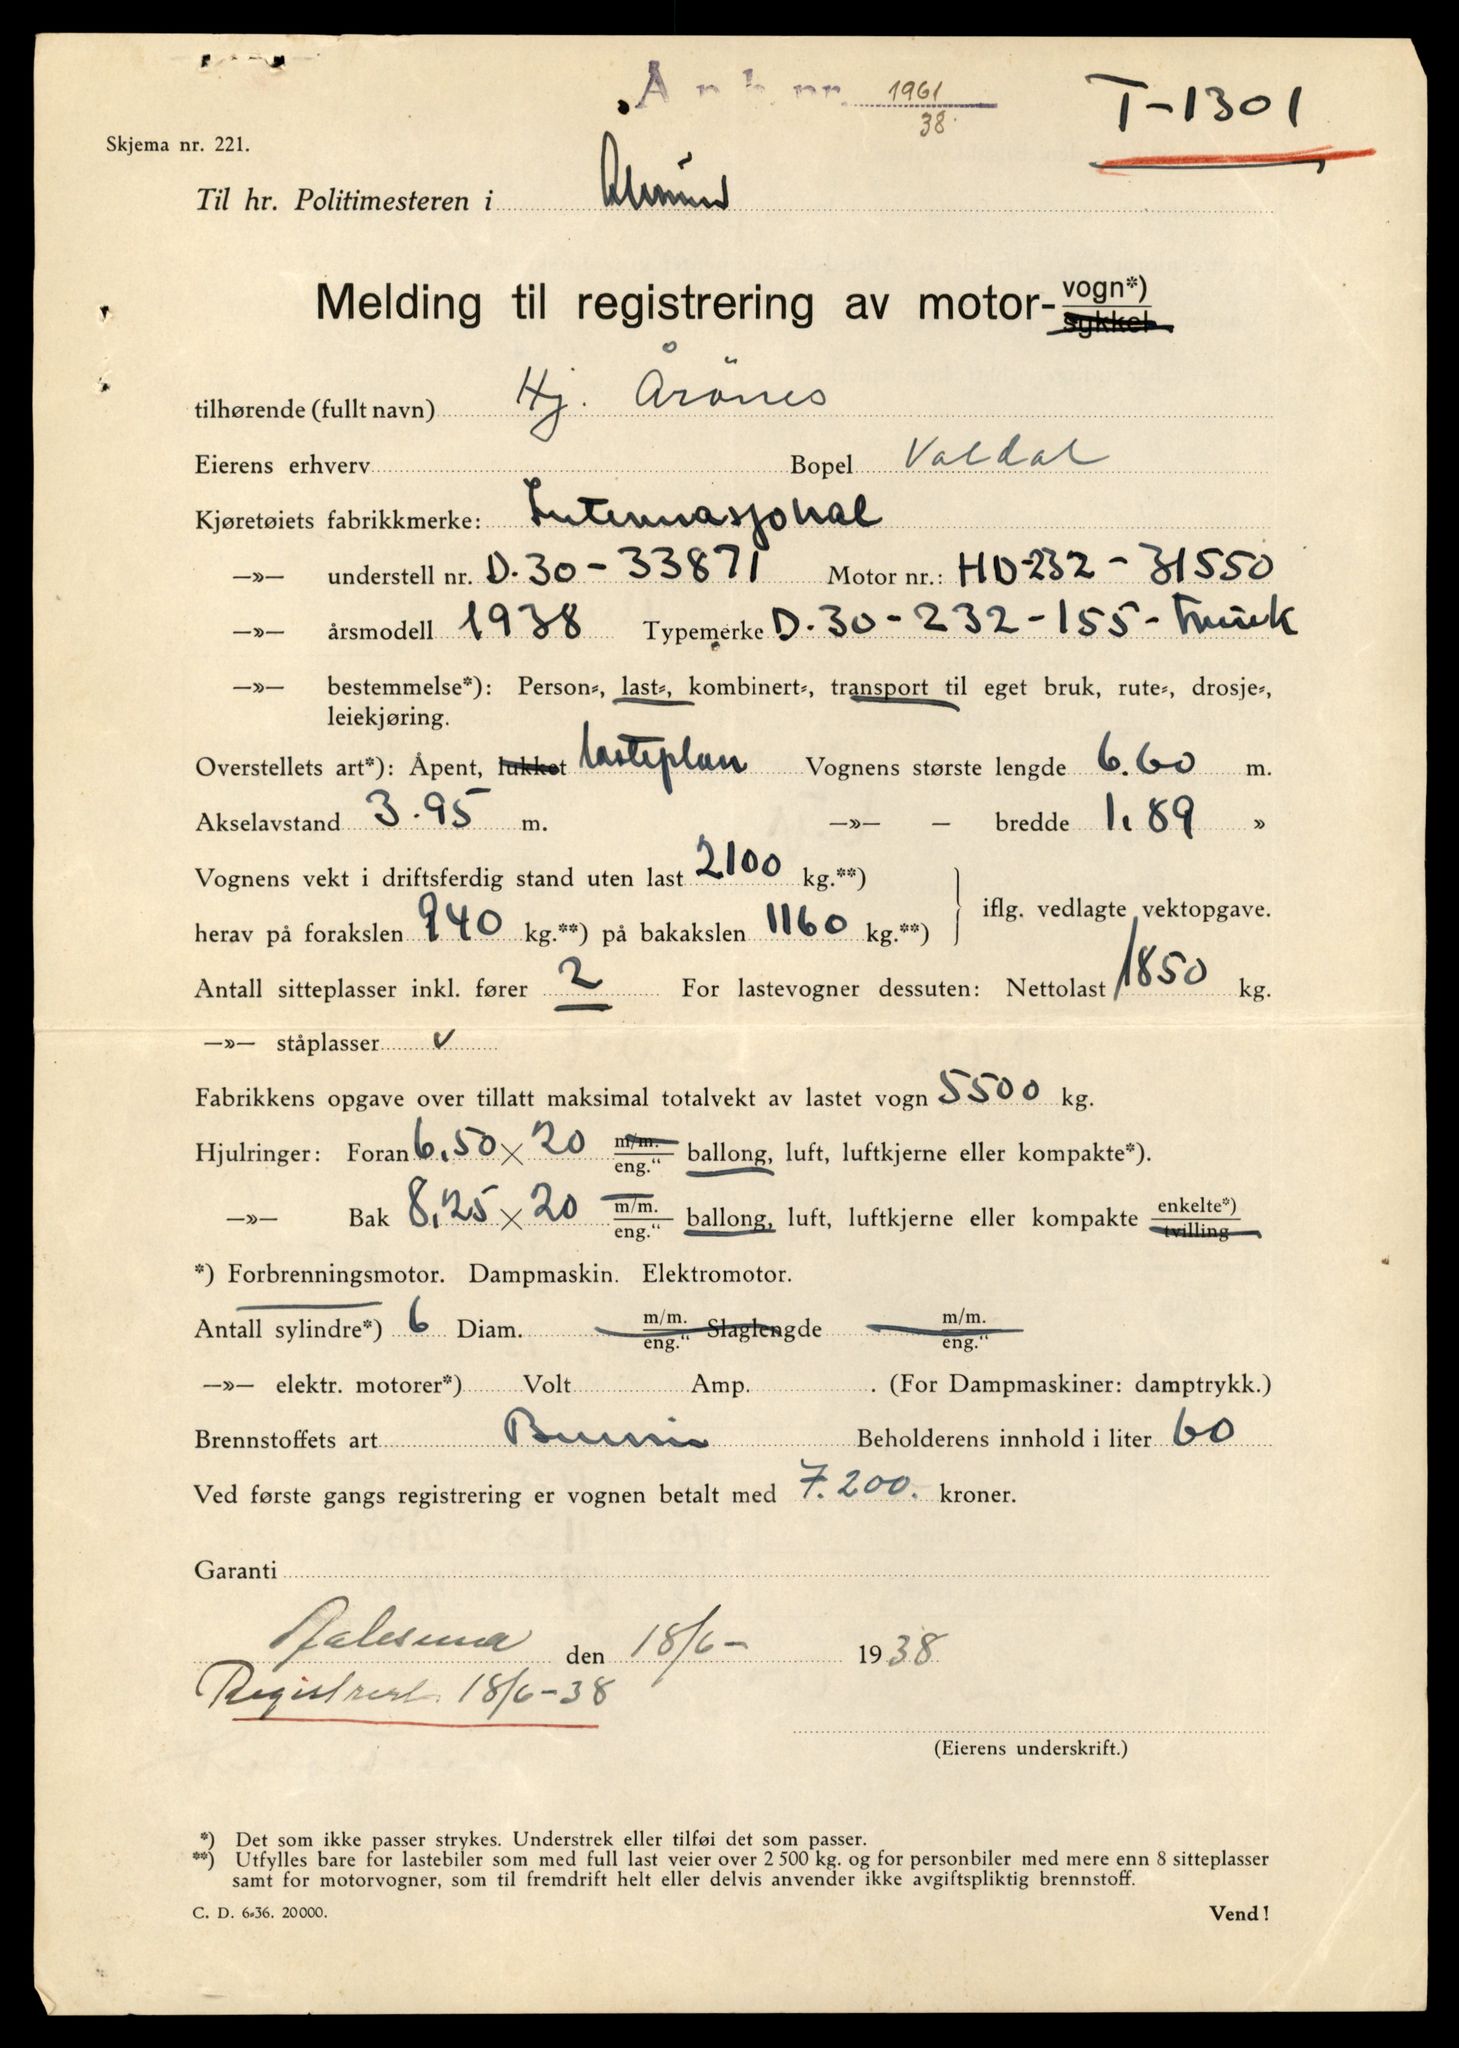 Ank. nr. 1961/38.
T-1301
Skjema nr. 221.
Til hr. Politimesteren i Ålesund
Melding til registrering av motor- vogn*) sykkel
tilhørende (fullt navn) Hj. Årönes
Eierens erhverv Bopel Valdal
Kjøretøiets fabrikkmerke: Internasjonal
—»— understell nr. D.30-33871 Motor nr.: HD-232-31550
—»— årsmodell 1938 Typemerke D.30-232-155-Truck
—»— bestemmelse*): Person-, last-, kombinert-, transport til eget bruk, rute-, drosje-,
leiekjøring.
Overstellets art*): Åpent, lukket lasteplan Vognens største lengde 6.60 m.
Akselavstand 3.95 m. —»— — bredde 1.89 »
Vognens vekt i driftsferdig stand uten last 2100 kg.**)
herav på forakslen 940 kg.**) på bakakslen 1160 kg.**) iflg. vedlagte vektopgave.
Antall sitteplasser inkl. fører 2 For lastevogner dessuten: Nettolast 1850 kg.
—»— ståplasser
Fabrikkens opgave over tillatt maksimal totalvekt av lastet vogn 5500 kg.
Hjulringer: Foran 6.50 x 20 m/m. eng." ballong, luft, luftkjerne eller kompakte*).
—»— Bak 8,25 x 20 m/m. eng." ballong, luft, luftkjerne eller kompakte enkelte*) tvilling
*) Forbrenningsmotor. Dampmaskin. Elektromotor.
Antall sylindre*) 6 Diam. m/m. eng." Slaglengde m/m. eng."
—»— elektr. motorer*) Volt Amp. . (For Dampmaskiner: damptrykk.)
Brennstoffets art Bensin Beholderens innhold i liter 60
Ved første gangs registrering er vognen betalt med 7.200. kroner.
Garanti
Aalesund den 18/6- 1938
Registrert 18/6-38
(Eierens underskrift.)
*) Det som ikke passer strykes. Understrek eller tilføi det som passer.
**) Utfylles bare for lastebiler som med full last veier over 2 500 kg. og for personbiler med mere enn 8 sitteplasser
samt for motorvogner, som til fremdrift helt eller delvis anvender ikke avgiftspliktig brennstoff.
C. D. 6-36. 20000.
Vend!